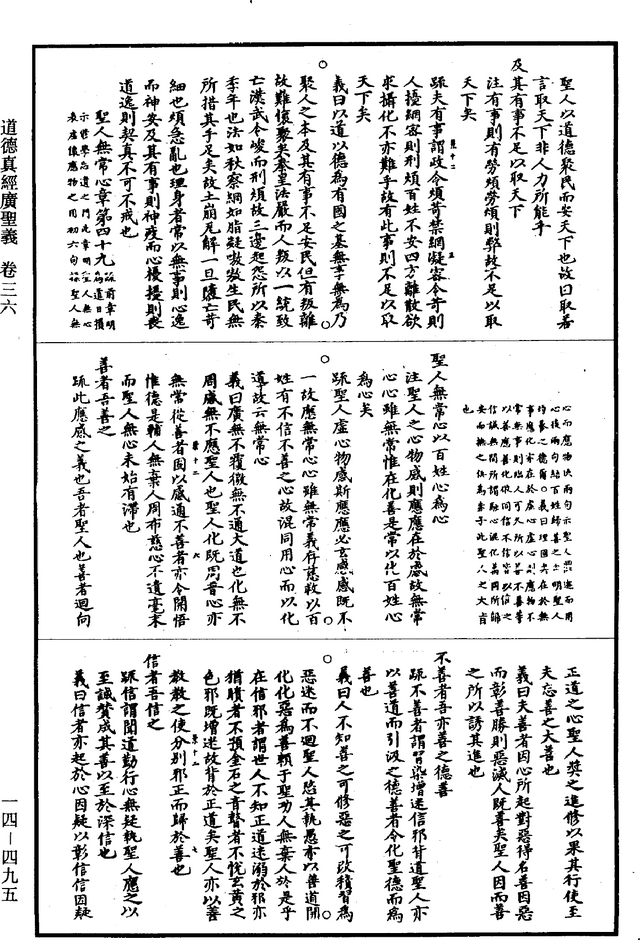 道德真經廣聖義　卷三六
一四—四九五
聖人以道德聚民而安天下也故曰取善
言取天下非人力所能乎
及其有事不足以取天下
注有事則有勞煩勞煩則弊故不足以取
天下矣
疏夫有事謂政令煩苛禁網凝密令苛則
人擾網密則刑煩百姓不安四方離散欲
求攝化不亦難乎故有此事則不足以取
天下矣
義曰以道以德為有國之基無事無為乃
聚人之本及其有事不足安民但有叛離
故難懷聚矣秦皇法嚴而人叛以一統致
亡漢武令峻而刑煩故三邊起怨所以秦
季年也法如秋察網如脂凝嗷嗷生民無
所措其手足矣故土崩瓦解一旦隨亡苛
細也煩急亂也理身者常以無事則心逸
而神安及其有事則神疲而心擾擾則喪
道逸則契真不可不戒也
聖人無常心章第四十九
疏前章明為道日損
示進學忘遺之門此章明聖人無心
表虛懷應物之用初六句疏聖人無
心而應物決兩句示聖人渾迷而用
心後兩句結百姓歸善之士明聖人
聖人無常心以百姓心為心
注聖人之心物感則應應在於感故無常
心心雖無常惟在化善是常以化百姓心
為心矣
疏聖人虛心物感斯應應必玄感感既不
一故應無常心心雖無常義存慈救以百
姓有不信不善之心故混同用心而以化
道故云無常心
義曰廣無不覆微無不通大道也化無不
周感無不應聖人也聖人化既周普心亦
無常從善者因以感通不善者亦令開悟
惟德是輔人無棄人周布慈心不遺毫末
而聖人無心未始有滯也
善者吾善之
疏此應感之義也吾者聖人也善者迴向
正道之心聖人獎之進修以果其行使至
夫忘善之大善也
義曰夫善者因心所起對惡得名善因惡
而彰善勝則惡滅人既善矣聖人因而善
之所以誘其進也
不善者吾亦善之德善
疏不善者謂習染增迷信邪背道聖人亦
以善道而引汲之德善者令化聖德而為
善也
義曰人不知善之可修惡之可改積習為
惡迷而不迴聖人愍其執愚亦以善道開
化化惡為善賴于聖功人無棄人於是乎
在信邪者謂世人不知正道迷溺於邪亦
猶聵者不預金石之音瞽者不悅玄黃之
色邪既增迷故背於正道矣聖人亦以善
教教之使分別邪正而歸於善也
信者吾信之
疏信謂聞道勤行心無疑執聖人應之以
至誠贊成其善以至於深信也
義曰信者亦起於心因疑以彰信信因疑